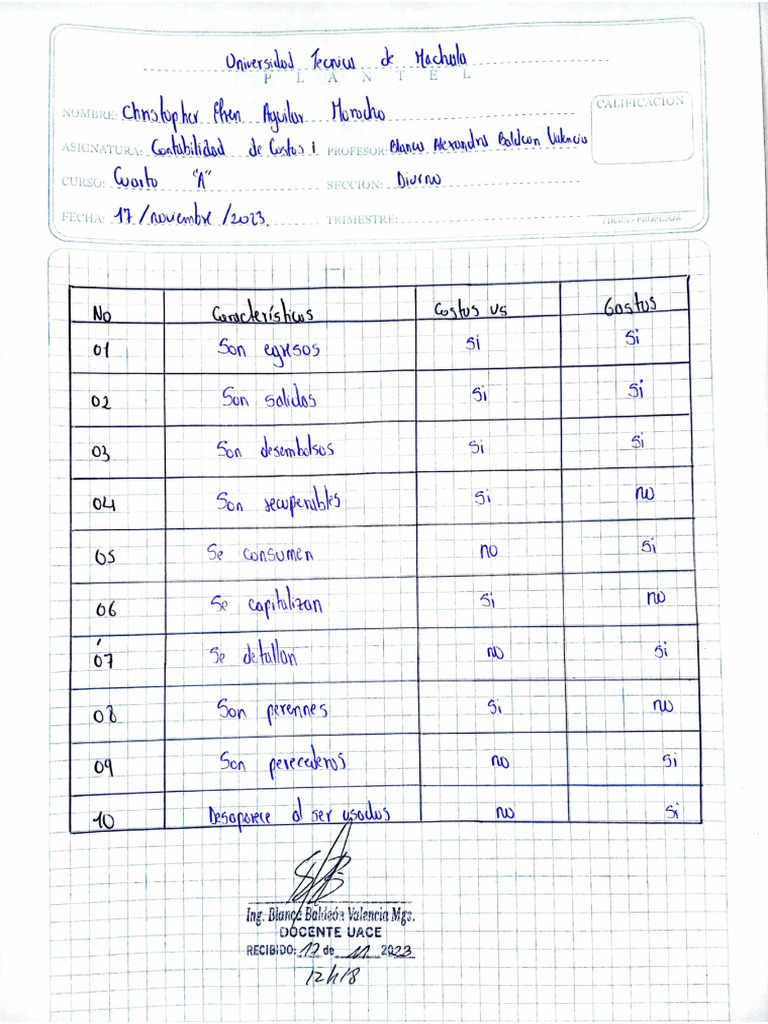 Universidad Tecnica de Machala
PLANTEL
NOMBRE: Christopher Efren Aguilar Morocho
CALIFICACION
ASIGNATURA: Contabilidad de Costos I PROFESOR: Blanca Alexandra Baldeon Valencia
CURSO: Cuarto "A" SECCION: Diurno
FECHA: 17/noviembre/2023. TRIMESTRE:
FIRMA - PROFESOR
No Características Costos vs Gastos
01 Son egresos Si Si
02 Son salidas Si Si
03 Son desembolsos Si Si
04 Son recuperables Si no
05 Se consumen no Si
06 Se capitalizan Si no
07 Se detallan no Si
08 Son perennes Si no
09 Son perecederos no Si
10 Desaparece al ser usados no Si
Ing. Blanca Baldeón Valencia Mgs.
DOCENTE UACE
RECIBIDO: 17 de 11 2023
12h18